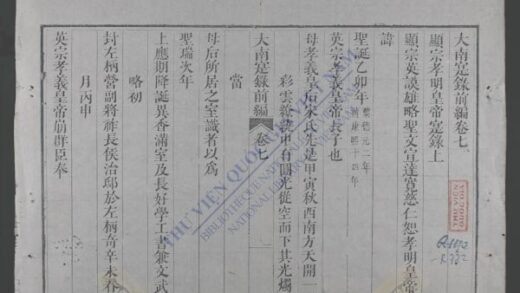 大南寔錄前編卷七
顯宗孝明皇帝寔錄上
顯宗英謨雄略聖文宣達寬慈仁恕孝明皇帝
諱
聖誕乙卯年
黎德元二年
清康熙十四年
英宗孝義皇帝長子也
母孝義皇后宋氏先是甲寅秋酉南方天開一
彩雲繚繞中有圓光從空而下其光燭
大南寔錄前編 卷七
當
母后所居之室識者以為
聖瑞次年
上應期降誕異香滿室及長好學工書兼文武
略初
封左柄營副將祚長侯治邸於左柄奇辛未春
月丙申
英宗孝義皇帝崩群臣奉
THƯ VIỆN QUỐC GIA
BIBLIOTHEQUE NATIONALE
NATIONAL LIBRARY